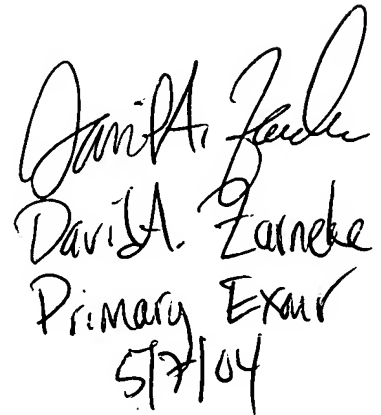 David A. Zarneke
David A. Zarneke
Primary Exmr
5/7/04